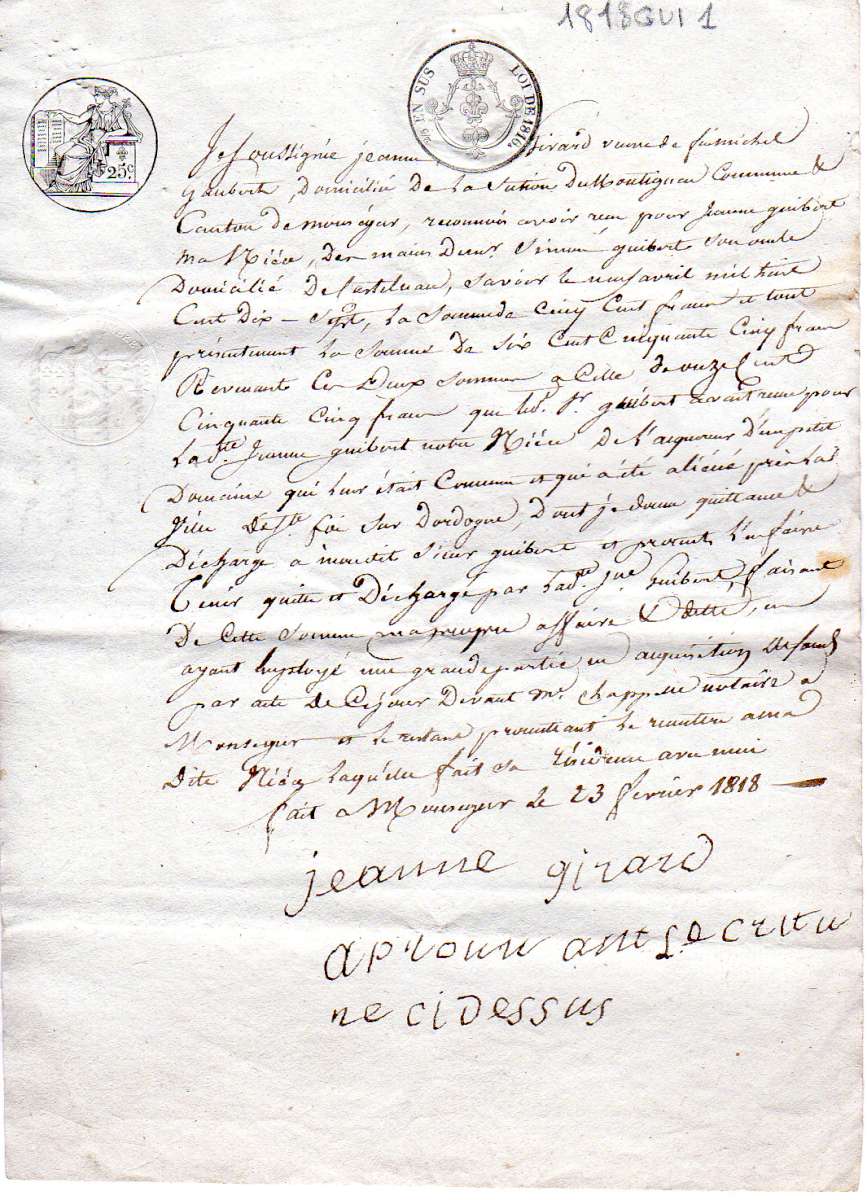 1818GUI 1
2/5 EN SUS LOI DE 1816.
25c.
Je soussignée jeanne Girard veuve de feu michel
gaubert, Domicilié De La Section Du Montignac Commune &
Canton De monségur, reconnois avoir reçu pour Jeanne guibert
ma Niéce, Des mains De sr. Simon guibert son oncle
Domicilié De Castelnau, savoir le neuf avril mil huit
Cent Dix - Sept, La Somme de Cinq Cent francs et tout
présentement La Somme De Six Cent Cinquante Cinq francs
Revenants Ces Deux Sommes a Celle de onze Cent
Cinquante Cinq francs que led. Sr. guibert avait reçue pour
Lade. Jeanne guibert notre Niéce De l'acquereur D'un petit
Domaine qui leur était Commun et qui a été aliéné près La
Ville De Ste. foi sur Dordogne, Dont je donne quittance &
Décharge a mondit Sieur guibert et promets l'en faire
Tenir quitte et Déchargé par Ladte. jne. Guibert, faisant
De Cette Somme ma propre affaire & dette, en
ayant employé une grande partie en acquisition de fonds
par acte De Ce jour Devant Me. Chappelle notaire a
Monsegur et le restant promettant le remettre a ma
Dite Niéce Laquelle fait sa Résidence avec moi
fait a Monsegur le 23 fevrier 1818
jeanne girard
aprouvant Le critu
re ci dessus